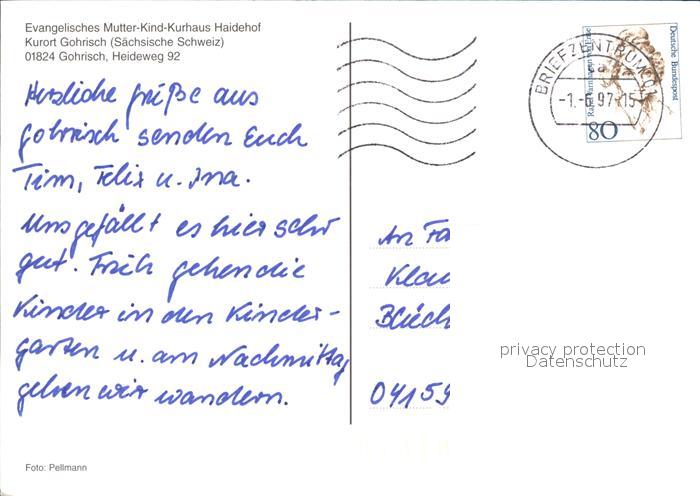 Evangelisches Mutter-Kind-Kurhaus Haidehof
Kurort Gohrisch (Sächsische Schweiz)
01824 Gohrisch, Heideweg 92
Herzliche Grüße aus
Gohrisch senden Euch
Tim, Felix u. Ina.
Uns gefällt es hier sehr
gut. Früh gehen die
Kinder in den Kinder-
garten u. am Nachmittag
gehen wir wandern.
Foto: Pellmann
BRIEFZENTRUM 01
-1.-6.97-15
Deutsche Bundespost
80
An Fa
Klau
Blüch
04159
privacy protection
Datenschutz